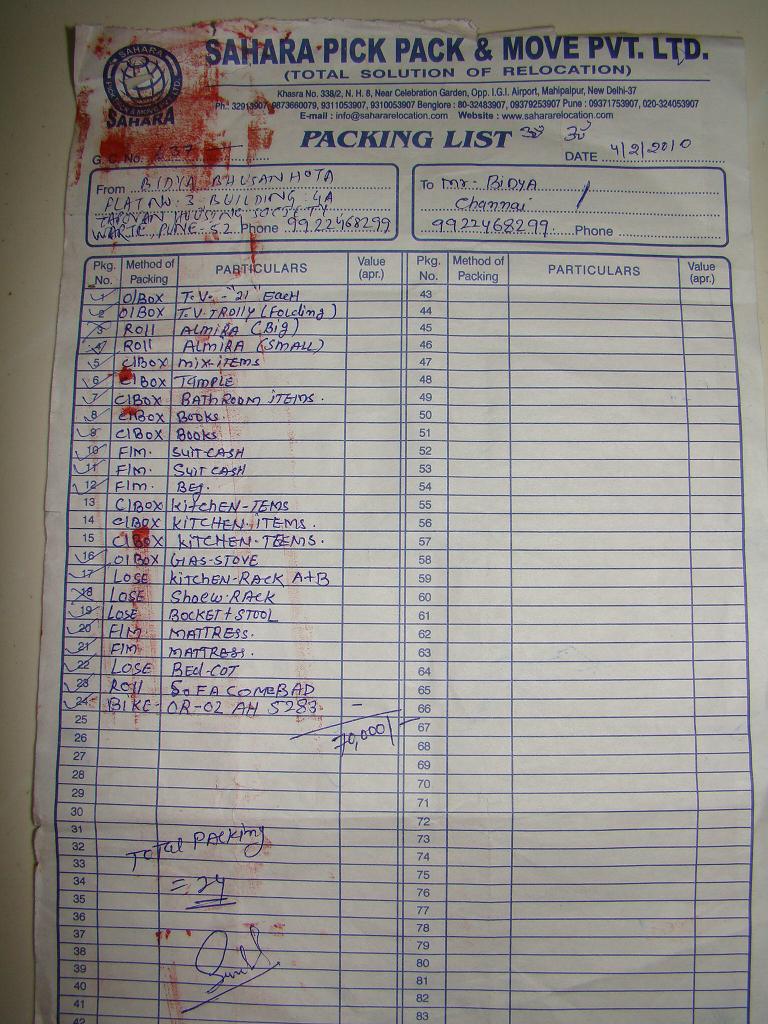 SAHARA PICK PACK & MOVE PVT. LTD.
(TOTAL SOLUTION OF RELOCATION)
SAHARA
SAHARA
Khasra No. 338/2, N. H. 8, Near Celebration Garden, Opp. I.G.I. Airport, Mahipalpur, New Delhi-37
Ph.: 32913907, 9873660079, 9311053907, 9310053907 Benglore : 80-32483907, 09379253907 Pune : 09371753907, 020-324053907
E-mail : info@sahararelocation.com Website : www.sahararelocation.com
PACKING LIST
G. C. No. 137
DATE 4/2/2010
From BIDYA BHUSAN HOTA
PLAT NO. 3 BUILDING 4A
TAPOVAN HOUSING SOCIETY
WARJE, PUNE-52 Phone 9922468299
To Mr. BIDYA
Channai
9922468299 Phone
Pkg. No. Method of Packing PARTICULARS Value (apr.) Pkg. No. Method of Packing PARTICULARS Value (apr.)
1 O/BOX T.V. - "21" EacH 43
2 O/BOX T.V. TROLLY (Folding) 44
3 ROll ALMIRA (Big) 45
4 ROll ALMIRA (SMALL) 46
5 C/BOX mix-iTEMS 47
6 C/BOX TAMPLE 48
7 C/BOX BATHROOM iTEMS. 49
8 C/BOX BOOKS. 50
9 C/BOX BOOKS 51
10 F/M. SUIT CASH 52
11 F/M. SUIT CASH 53
12 F/M. BEG. 54
13 C/BOX KitCHEN-TEMS 55
14 C/BOX KITCHEN-ITEMS. 56
15 C/BOX KITCHEN-TEEMS. 57
16 O/BOX GAS-STOVE 58
17 LOSE KITCHEN-RACK A+B 59
18 LOSE Shoew-RACK 60
19 LOSE BOCKET + STOOL 61
20 F/M MATTRESS. 62
21 F/M MATTRESS. 63
22 LOSE BED-COT 64
23 ROll SOFA COMEBAD 65
24 BIKE- OR-02 AH 5283 - 66
25 70,000/- 67
26 68
27 69
28 70
29 71
30 72
31 73
32 74
33 75
34 76
35 77
36 78
37 79
38 80
39 81
40 82
41 83
42
TOTAL PACKING
= 24